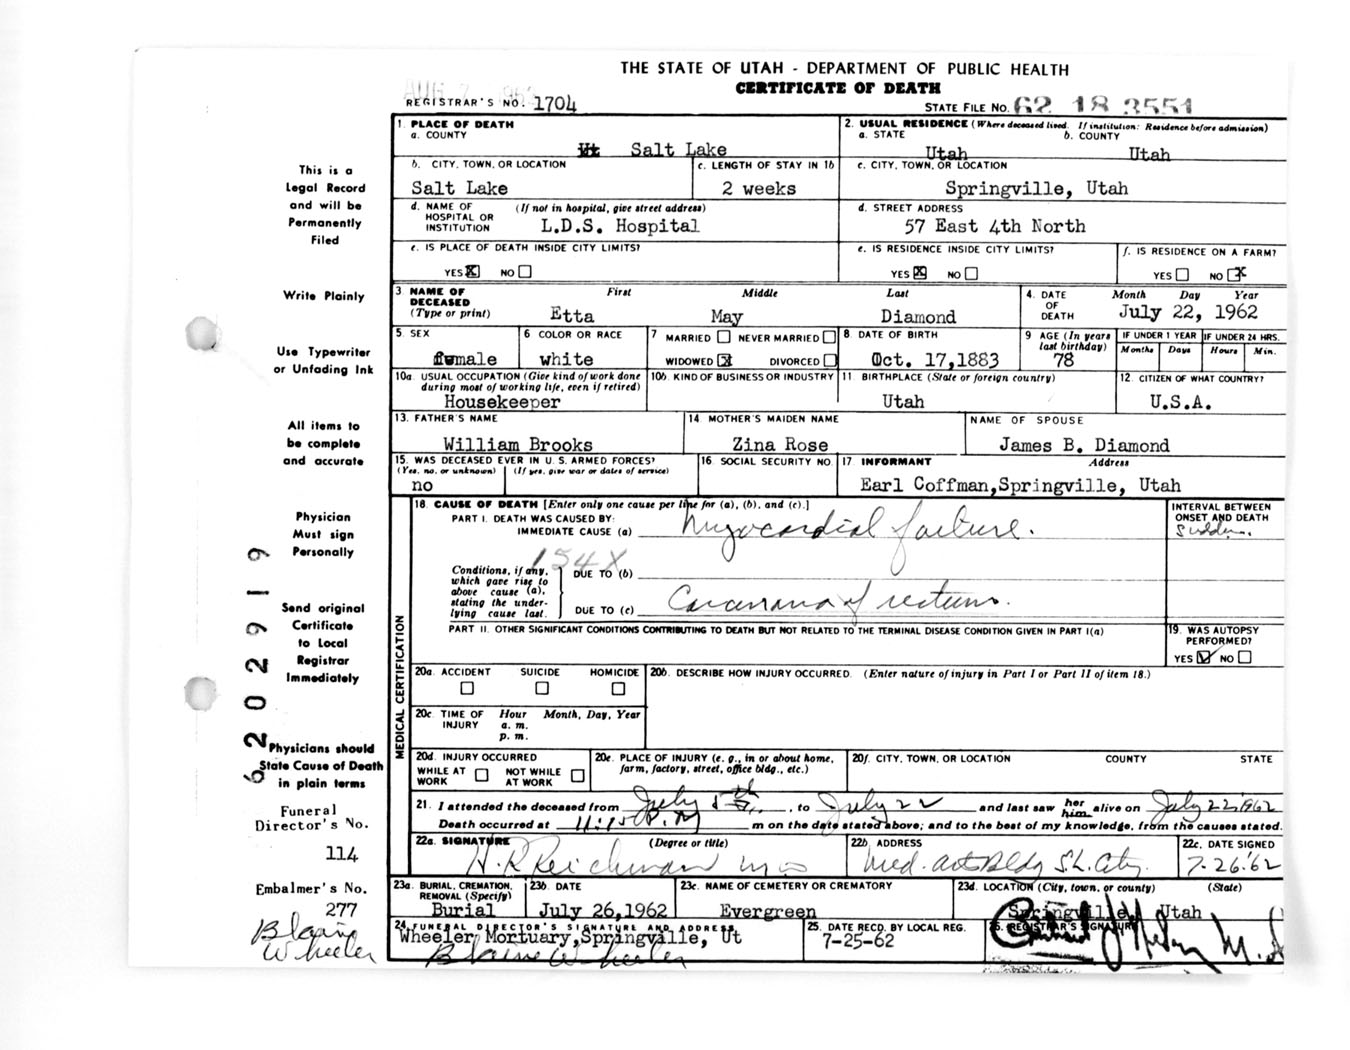 THE STATE OF UTAH - DEPARTMENT OF PUBLIC HEALTH
CERTIFICATE OF DEATH
AUG 7 1962
REGISTRAR'S NO. 1704
STATE FILE NO. 62 18 3551
This is a
Legal Record
and will be
Permanently
Filed
Write Plainly
Use Typewriter
or Unfading Ink
All items to
be complete
and accurate
Physician
Must sign
Personally
Send original
Certificate
to Local
Registrar
Immediately
Physicians should
State Cause of Death
in plain terms
Funeral
Director's No.
114
Embalmer's No.
277
Blaine
Wheeler
6202919
1. PLACE OF DEATH
a. COUNTY
Ut Salt Lake
2. USUAL RESIDENCE (Where deceased lived. If institution: Residence before admission)
a. STATE b. COUNTY
Utah Utah
b. CITY, TOWN, OR LOCATION
Salt Lake
c. LENGTH OF STAY IN 1b
2 weeks
c. CITY, TOWN, OR LOCATION
Springville, Utah
d. NAME OF HOSPITAL OR INSTITUTION (If not in hospital, give street address)
L.D.S. Hospital
d. STREET ADDRESS
57 East 4th North
e. IS PLACE OF DEATH INSIDE CITY LIMITS?
YES X NO
e. IS RESIDENCE INSIDE CITY LIMITS?
YES X NO
f. IS RESIDENCE ON A FARM?
YES NO X
3. NAME OF DECEASED (Type or print) First Middle Last
Etta May Diamond
4. DATE OF DEATH Month Day Year
July 22, 1962
5. SEX
female
6. COLOR OR RACE
white
7 MARRIED NEVER MARRIED
WIDOWED X DIVORCED
8. DATE OF BIRTH
Oct. 17,1883
9 AGE (In years last birthday)
78
IF UNDER 1 YEAR IF UNDER 24 HRS.
Months Days Hours Min.
10a. USUAL OCCUPATION (Give kind of work done during most of working life, even if retired)
Housekeeper
10b. KIND OF BUSINESS OR INDUSTRY
11 BIRTHPLACE (State or foreign country)
Utah
12. CITIZEN OF WHAT COUNTRY?
U.S.A.
13. FATHER'S NAME
William Brooks
14 MOTHER'S MAIDEN NAME
Zina Rose
NAME OF SPOUSE
James B. Diamond
15. WAS DECEASED EVER IN U.S. ARMED FORCES?
(Yes, no, or unknown) (If yes, give war or dates of service)
no
16. SOCIAL SECURITY NO.
17. INFORMANT Address
Earl Coffman,Springville, Utah
MEDICAL CERTIFICATION
18. CAUSE OF DEATH [Enter only one cause per line for (a), (b), and (c).]
PART I. DEATH WAS CAUSED BY:
IMMEDIATE CAUSE (a) Myocardial failure.
INTERVAL BETWEEN ONSET AND DEATH
Sudden.
154X
Conditions, if any, which gave rise to above cause (a), stating the underlying cause last.
DUE TO (b)
DUE TO (c) Carcinoma of rectum.
PART II. OTHER SIGNIFICANT CONDITIONS CONTRIBUTING TO DEATH BUT NOT RELATED TO THE TERMINAL DISEASE CONDITION GIVEN IN PART I(a)
19. WAS AUTOPSY PERFORMED?
YES NO
20a. ACCIDENT SUICIDE HOMICIDE
20b. DESCRIBE HOW INJURY OCCURRED. (Enter nature of injury in Part I or Part II of item 18.)
20c. TIME OF INJURY Hour Month, Day, Year
a. m.
p. m.
20d. INJURY OCCURRED
WHILE AT WORK NOT WHILE AT WORK
20e. PLACE OF INJURY (e. g., in or about home, farm, factory, street, office bldg., etc.)
20f. CITY, TOWN, OR LOCATION COUNTY STATE
21. I attended the deceased from July 5th, to July 22 and last saw her him alive on July 22, 1962
Death occurred at 11:15 P.M m on the date stated above; and to the best of my knowledge, from the causes stated.
22a. SIGNATURE (Degree or title)
H. R. Reichman MD
22b. ADDRESS
Med. Arts Bldg S.L. City.
22c. DATE SIGNED
7-26'62
23a. BURIAL, CREMATION, REMOVAL (Specify)
Burial
23b. DATE
July 26,1962
23c. NAME OF CEMETERY OR CREMATORY
Evergreen
23d. LOCATION (City, town, or county) (State)
Springville, Utah
24. FUNERAL DIRECTOR'S SIGNATURE AND ADDRESS
Wheeler Mortuary,Springville, Ut
Blaine Wheeler
25. DATE RECD. BY LOCAL REG.
7-25-62
26. REGISTRAR'S SIGNATURE